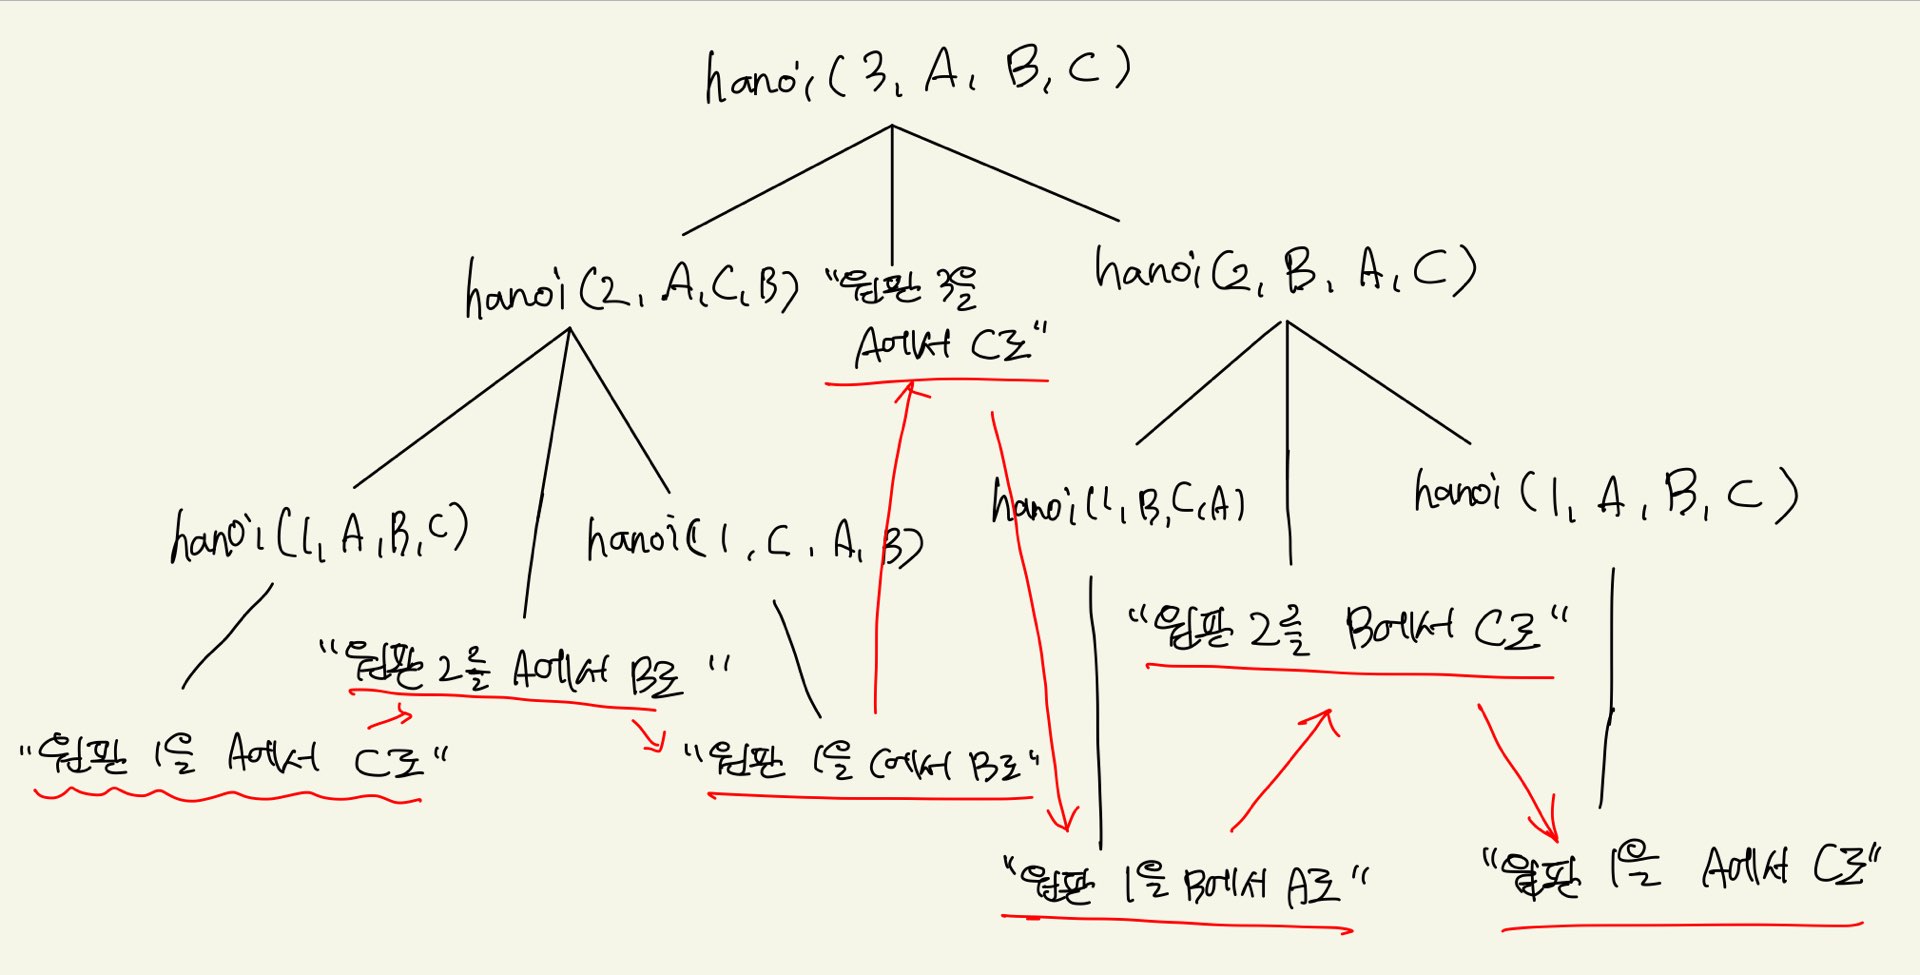 hanoi(3, A, B, C)
hanoi(2, A, C, B)
"원판 3을
A에서 C로"
hanoi(2, B, A, C)
hanoi(1, A, B, C)
hanoi(1, C, A, B)
hanoi(1, B, C, A)
hanoi(1, A, B, C)
"원판 2를 A에서 B로"
"원판 2를 B에서 C로"
"원판 1을 A에서 C로"
"원판 1을 C에서 B로"
"원판 1을 B에서 A로"
"원판 1을 A에서 C로"